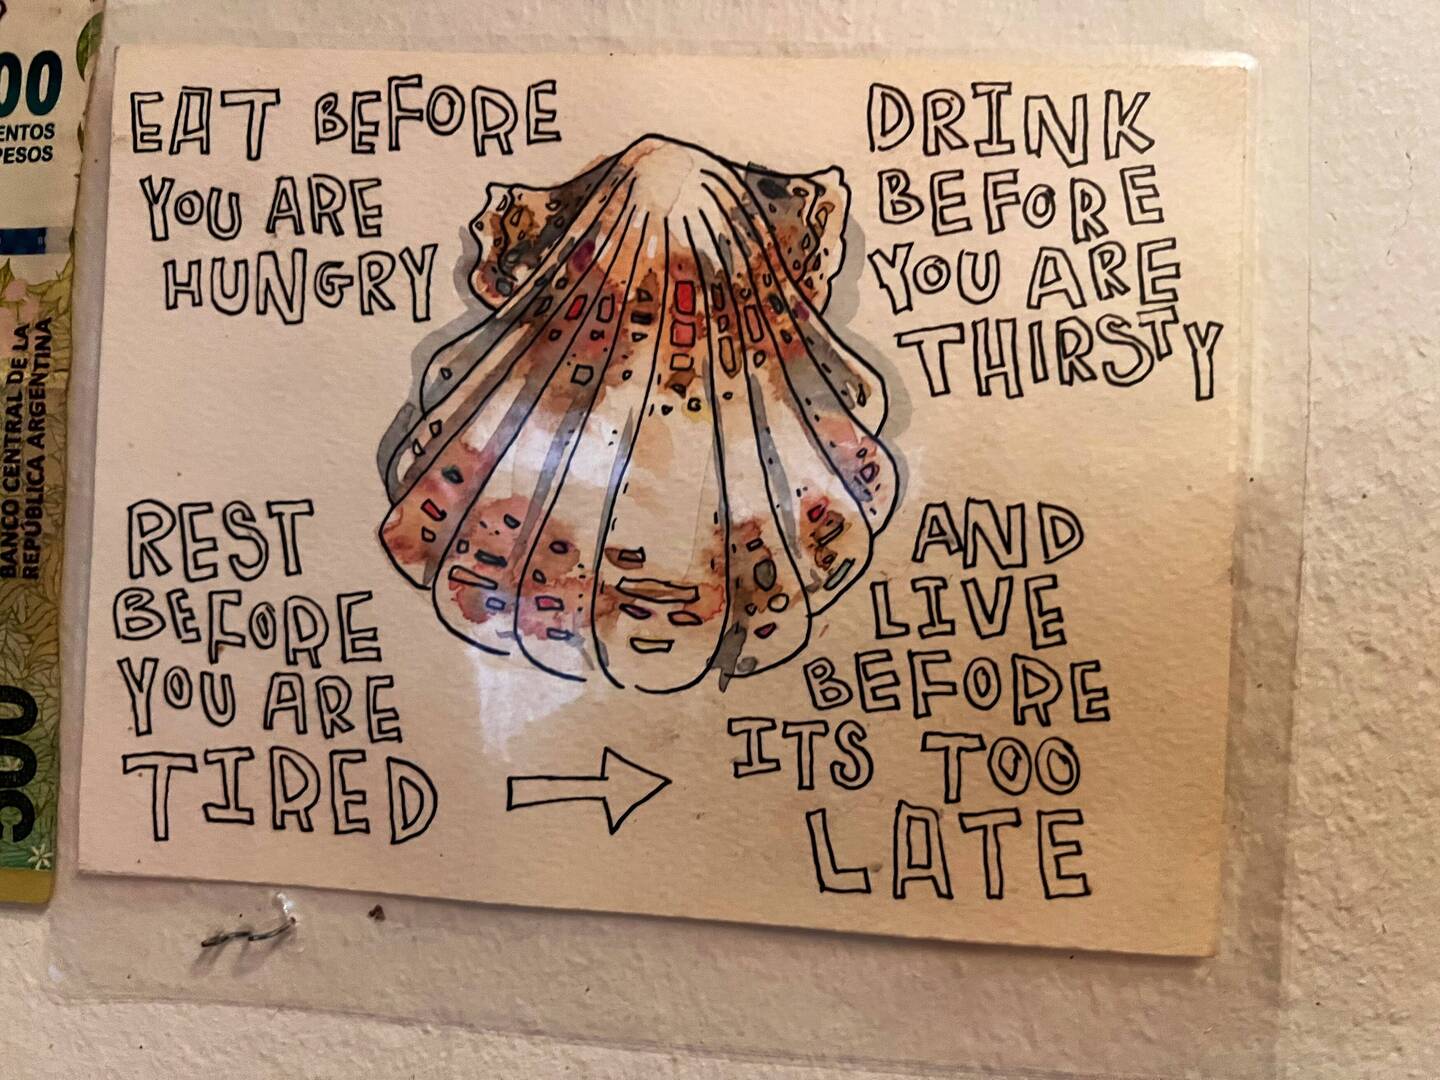 EAT BEFORE
YOU ARE
HUNGRY
DRINK
BEFORE
YOU ARE
THIRSTY
REST
BEFORE
YOU ARE
TIRED
AND
LIVE
BEFORE
ITS TOO
LATE
00
ENTOS
PESOS
BANCO CENTRAL DE LA
REPÚBLICA ARGENTINA
500